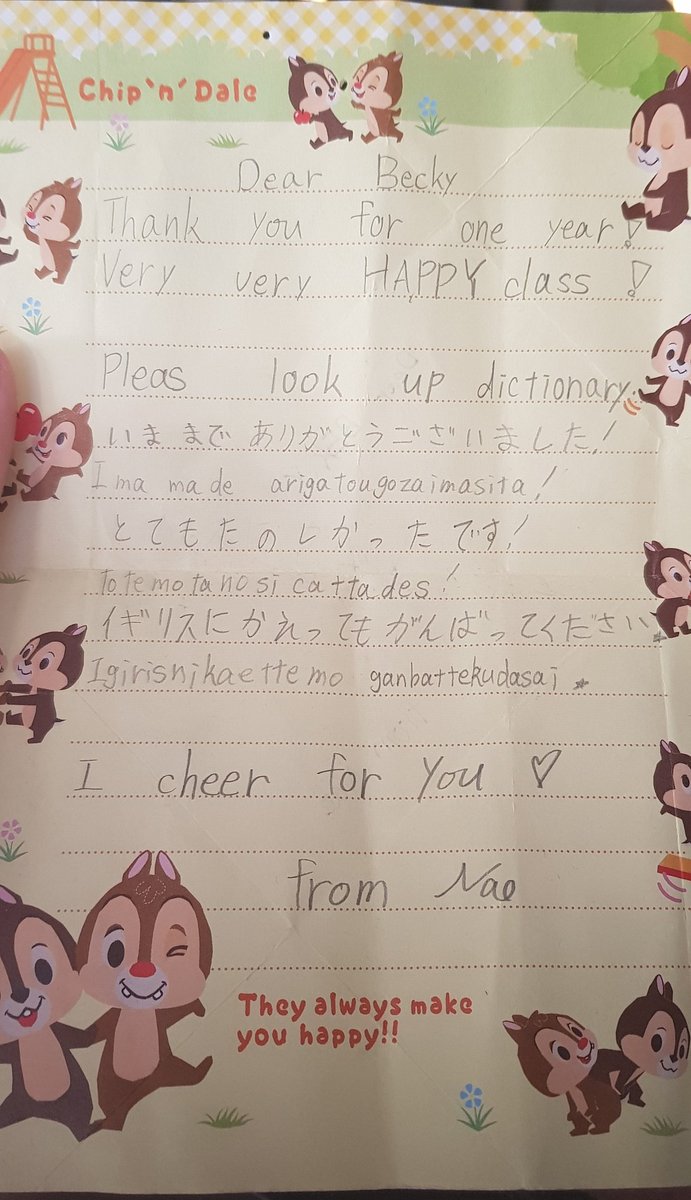 Chip 'n' Dale
Dear Becky
Thank you for one year!
Very very HAPPY class!
Pleas look up dictionary.
いままで ありがとうございました!
Ima made arigatougozaimasita!
とてもたのしかったです!
Totemotanosicattades!
イギリスにかえってもがんばってください★
Igirisnikaettemo ganbattekudasai ★
I cheer for you ♡
from Nao
They always make
you happy!!